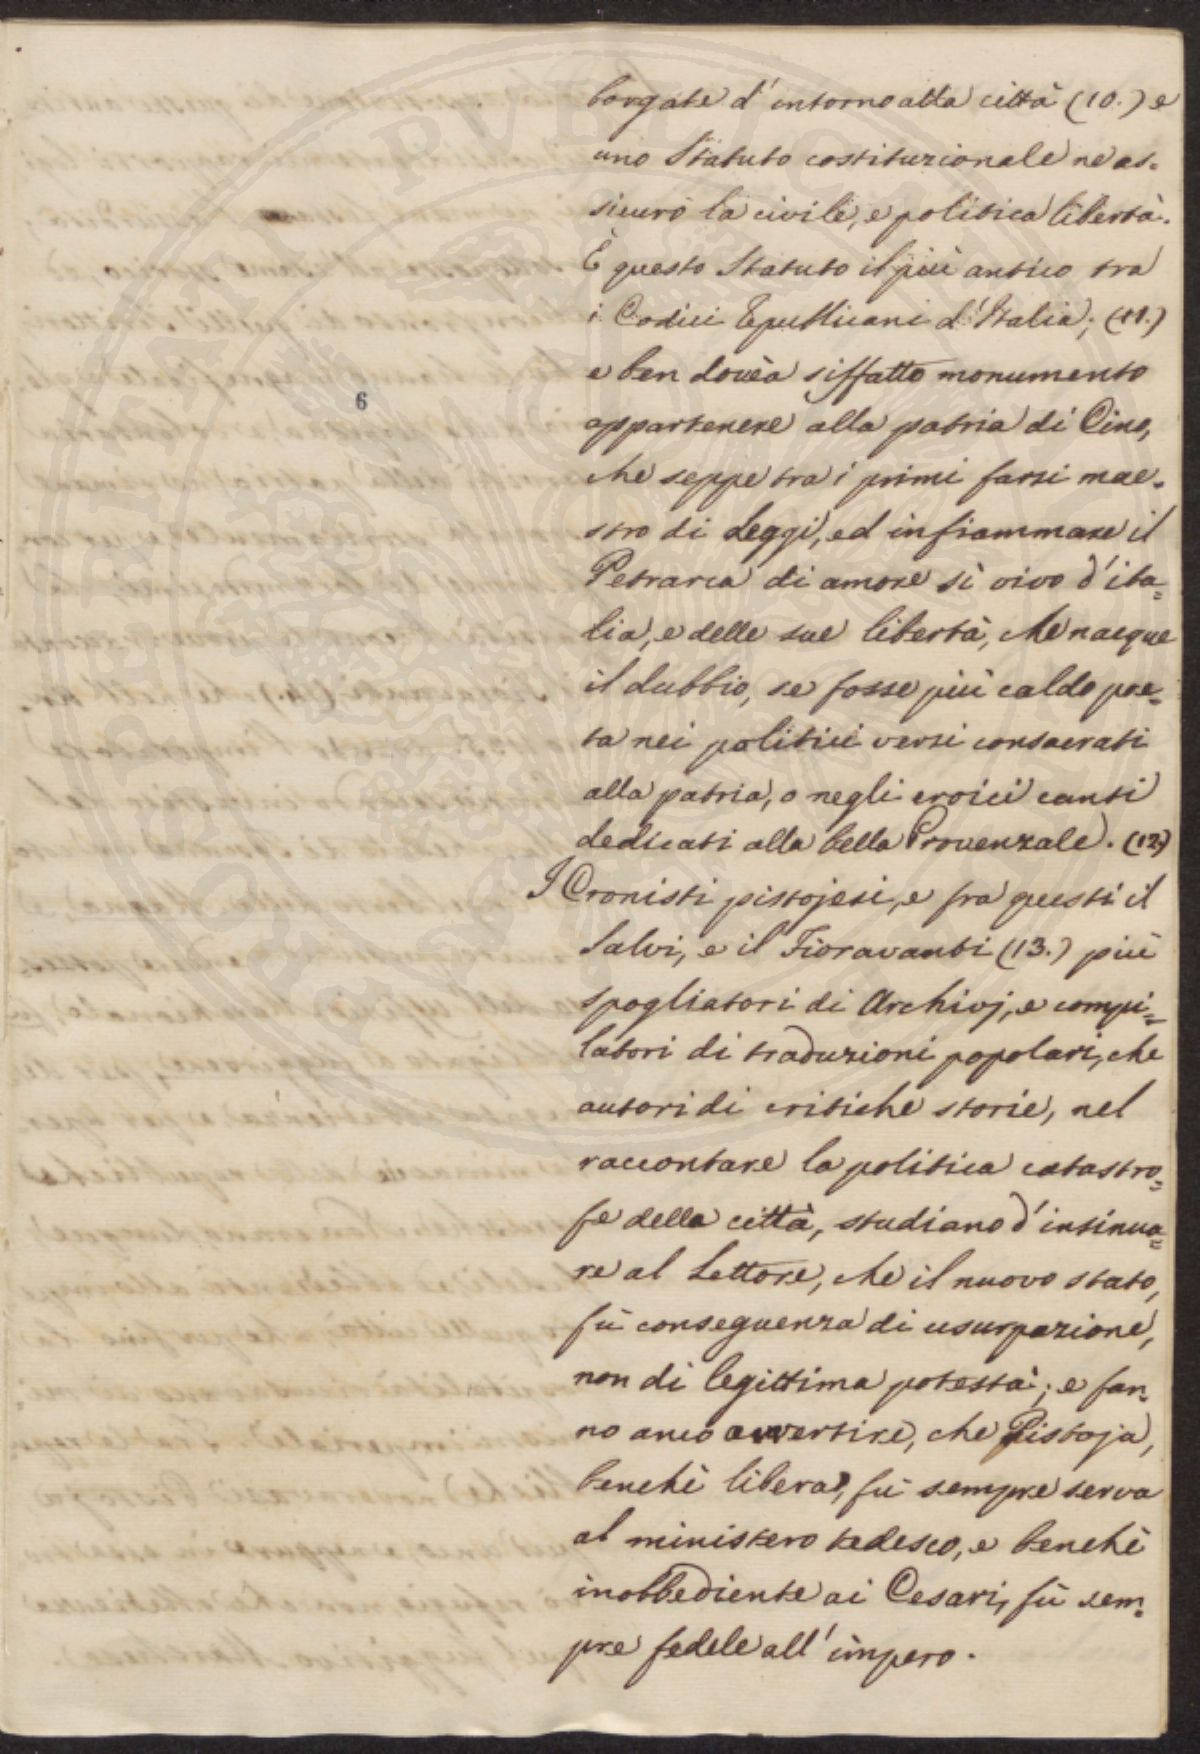 borgate d'intorno alla città (10.) e
uno Statuto costituzionale ne as=
sicurò la civile, e politica libertà.
È questo Statuto il più antico tra
i Codici Republicani d'Italia; (11.)
e ben dovèa siffatto monumento
appartenere alla patria di Cino,
che seppe tra i primi farsi mae=
stro di Leggi, ed infiammare il
Petrarca di amore sì vivo d'ita=
lia, e delle sue libertà, che nacque
il dubbio, se fosse più caldo poe=
ta nei politici versi consacrati
alla patria, o negli eroici canti
dedicati alla bella Provenzale. (12.)
I Cronisti pistojesi, e fra questi il
Salvi, e il Fioravanti (13.) più
spogliatori di Archivj, e compi=
latori di traduzioni popolari, che
autori di critiche storie, nel
raccontare la politica catastro=
fe della città, studiano d'insinua=
re al Lettore, che il nuovo stato,
fù conseguenza di usurpazione,
non di legittima potestà; e fan=
no anco avvertire, che Pistoja,
benchè libera, fù sempre serva
al ministero tedesco, e benchè
inobbediente ai Cesari, fù sem=
pre fedele all'impero.
6